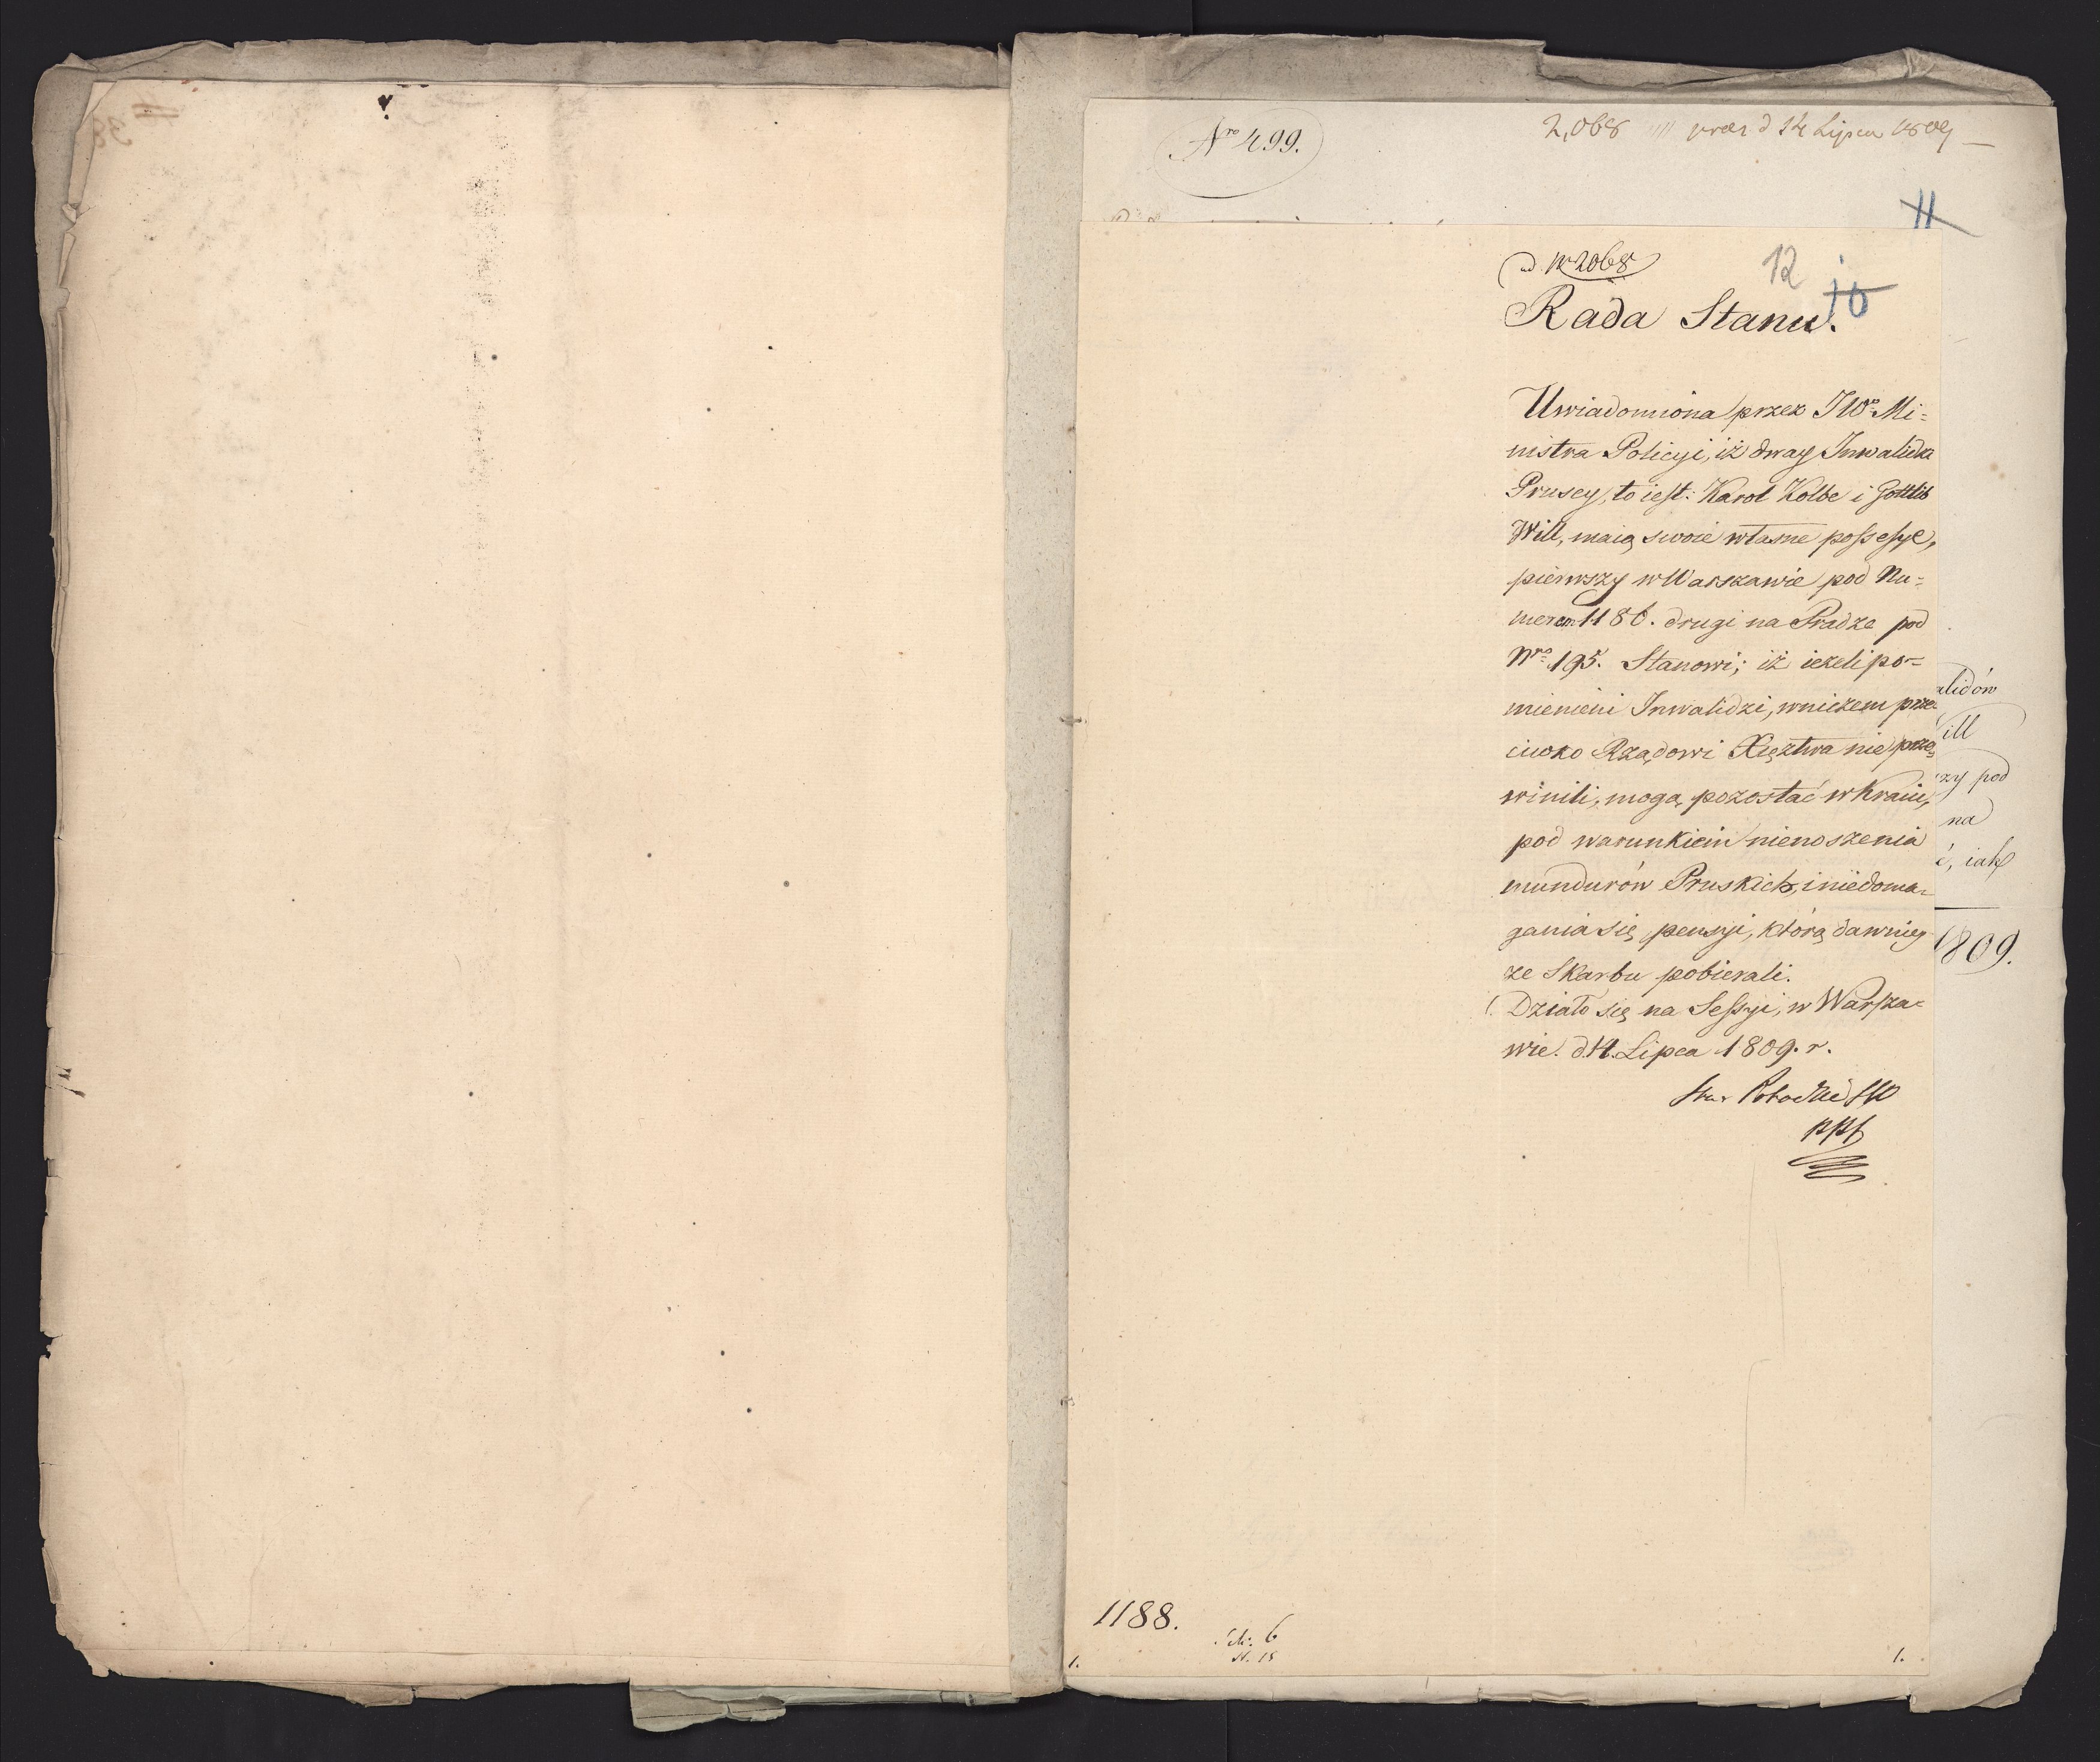 38
Nro 499.
2,068 praes d 14 Lipca 1809
11
ad Nr 2068
12
10
Rada Stanu.
Uwiadomiona przez JWo Mi=
nistra Policyi, iż dway Inwalidzi
Pruscy, to iest: Karol Kolbe i Gottlib
Will, maią swoie własne possessye,
pierwszy w Warszawie pod Nu=
merem 1186. drugi na Pradze pod
Nro 195. Stanowi; iż ieżeli po=
mienieni Inwalidzi, wniczem prze=
ciwko Rządowi Xięztwa nie prze=
winili, mogą pozostać w kraiu,
pod warunkiem nienoszenia
mundurów Pruskich, i niedoma=
gania się pensyi, którą dawniey
ze Skarbu pobierali.
Działo się na Sessyi, w Warsza=
wie. d. 14. Lipca 1809. r.
Stan Potocki
ppt
alidów
ill
zy pod
na
ć, iak
1809.
1188.
6
1.
1.